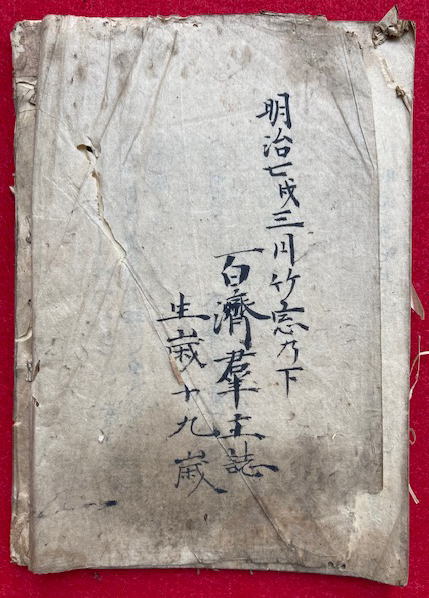 明治七戌三月竹窓乃下
百濟羣主誌
生歳十九歳